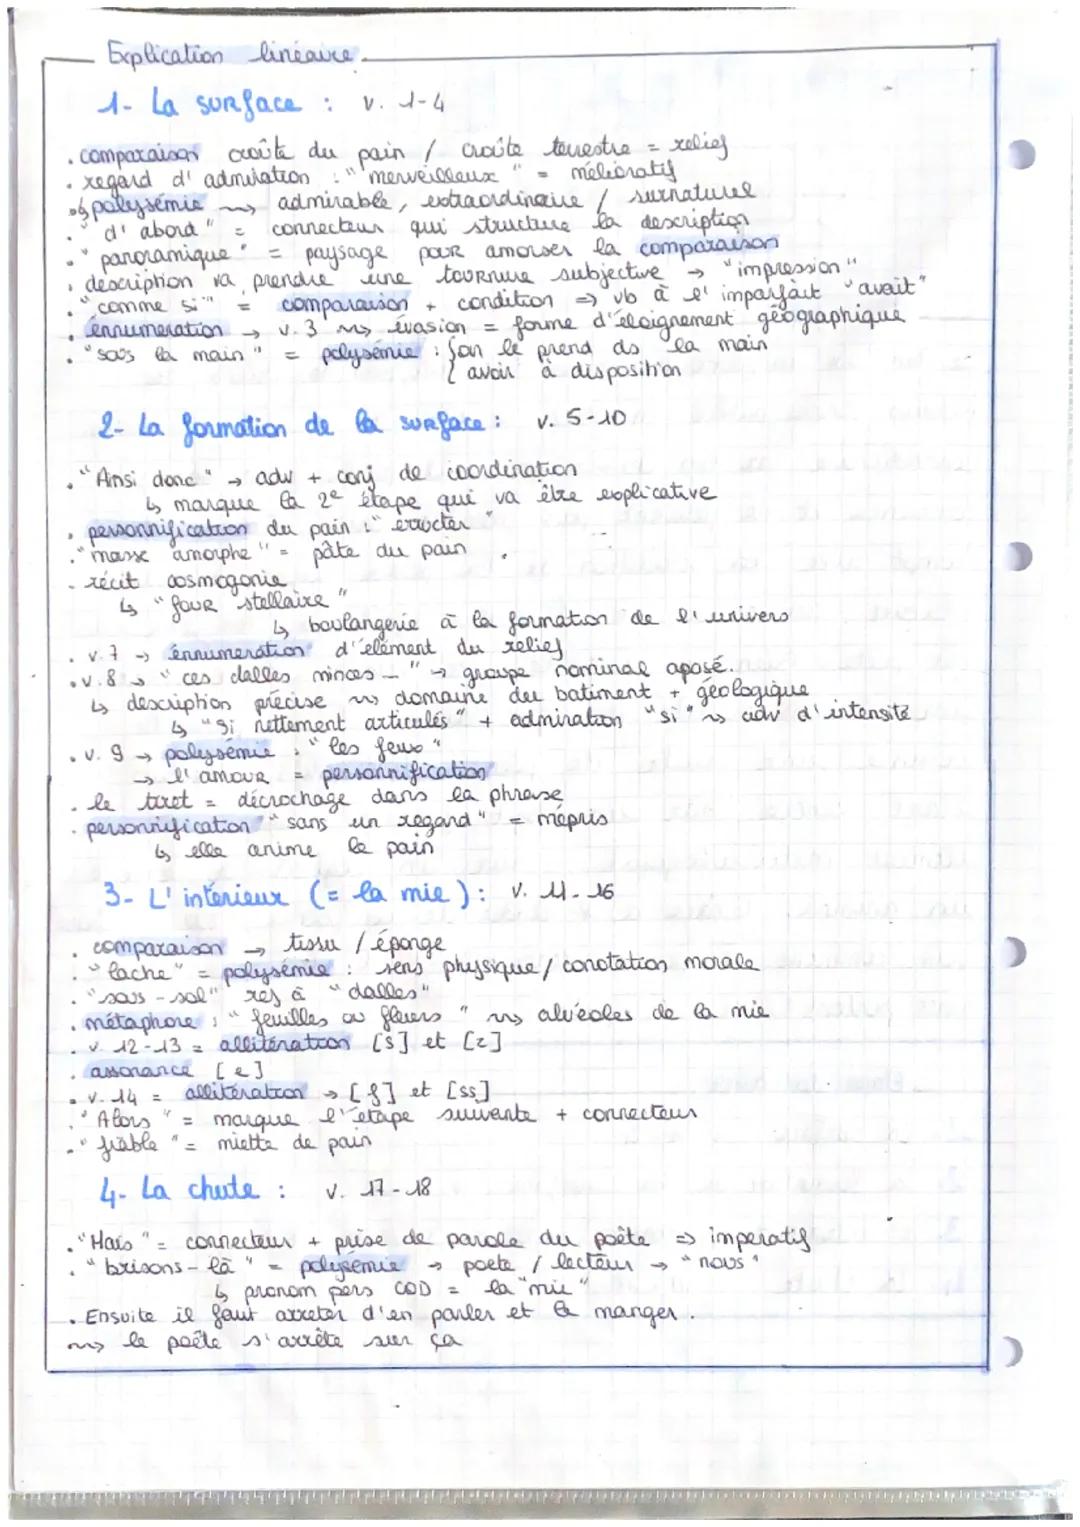 Explication linéaire.
1- La surface : v. 1-4
. comparaison croûte du pain / croûte terrestre = relief
. regard d'admiration : "merveilleux" = mélioratif
↳ polysémie ⇝ admirable, extraordinaire / surnaturel
. "d'abord" = connecteur qui structure la description
. "panoramique" = paysage pour amorser la comparaison
. description va prendre une tournure subjective → "impression"
. "comme si" = comparaison + condition ⇒ vb à l'imparfait "avait"
. énnumération → v.3 ⇝ évasion = forme d'éloignement géographique
. "sous la main" = polysémie : { on le prend ds la main
{ avoir à disposition
2- La formation de la surface : v. 5-10
. "Ainsi donc" → adv + conj de coordination
↳ marque la 2e étape qui va être explicative
. personnification du pain : "éructer"
. "masse amorphe" = pâte du pain
- récit cosmogonie
↳ "four stellaire"
↳ boulangerie à la formation de l'univers
. v.7 → énnumération d'élément du relief
. v.8 → "ces dalles minces _ " → groupe nominal aposé.
↳ description précise ⇝ domaine du batiment + géologique
↳ "si nettement articulés" + admiration "si" ⇝ adv d'intensité
. v. 9 → polysémie : "les feux"
→ l'amour = personnification
. le tiret = décrochage dans la phrase
. personnification "sans un regard" = mépris
↳ elle anime le pain
3- L'intérieur (= la mie) : v. 11-16
. comparaison → tissu / éponge
. "lache" = polysémie : sens physique / conotation morale
. "sous-sol" ref à "dalles"
. métaphore : "feuilles ou fleurs" ⇝ alvéoles de la mie
. v. 12-13 = allitération [s] et [z]
. assonance [e]
. v. 14 = allitération → [f] et [ss]
. "Alors" = marque l'étape suivante + connecteur
. "friable" = miette de pain
4- La chute : v. 17-18
. "Mais" = connecteur + prise de parole du poête ⇒ imperatif
. "brisons-là" = polysémie → poete / lecteur → "nous"
↳ pronom pers COD = la "mie"
. Ensuite il faut arreter d'en parler et la manger.
⇝ le poête s'arrête sur ça